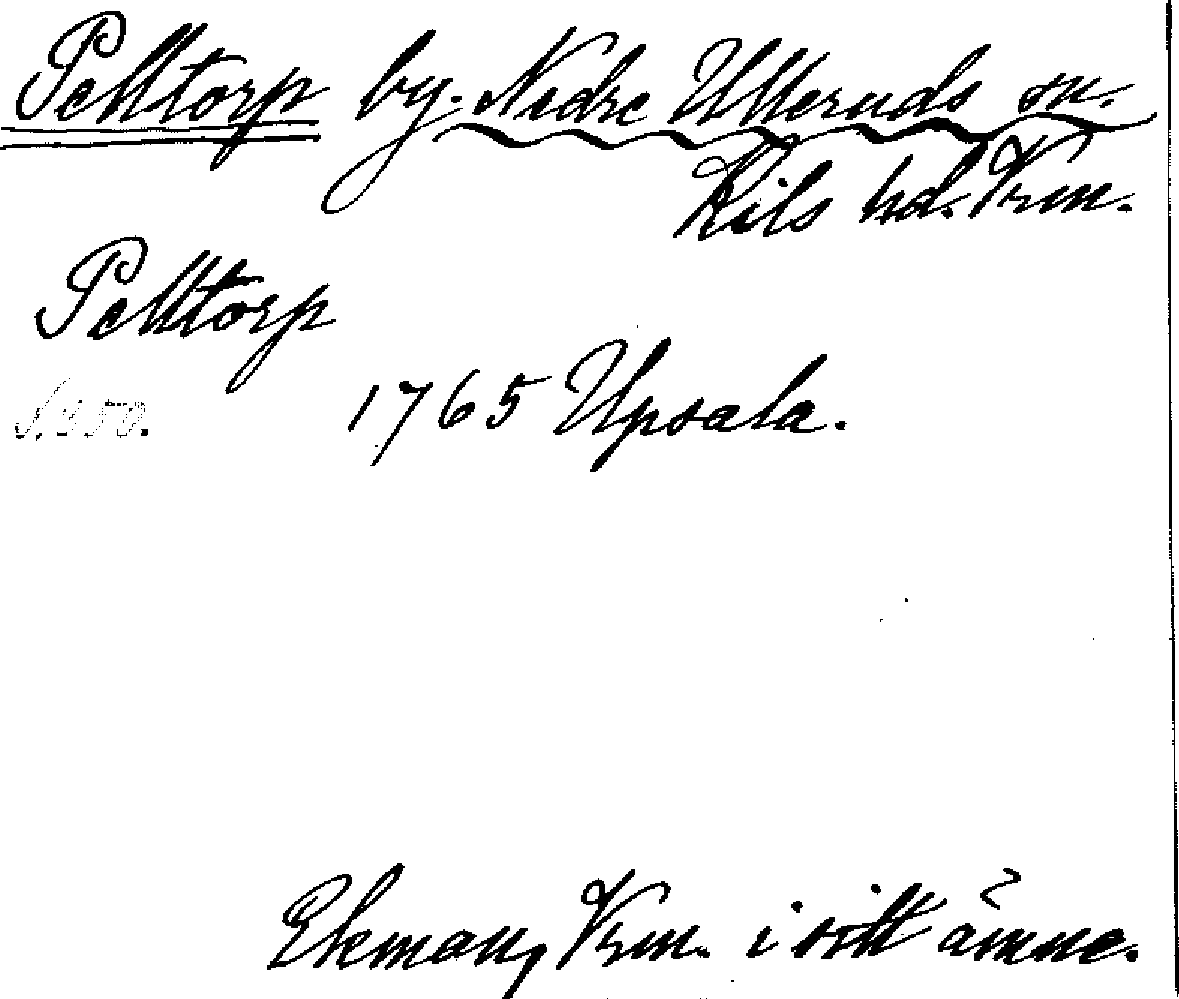 Pelltorp by. Nedre Ulleruds sn.
Kils hd. Vrm.
Pelltorp
S. 250. 1765 Upsala.
Ekman, Vrm. i sitt ämne.